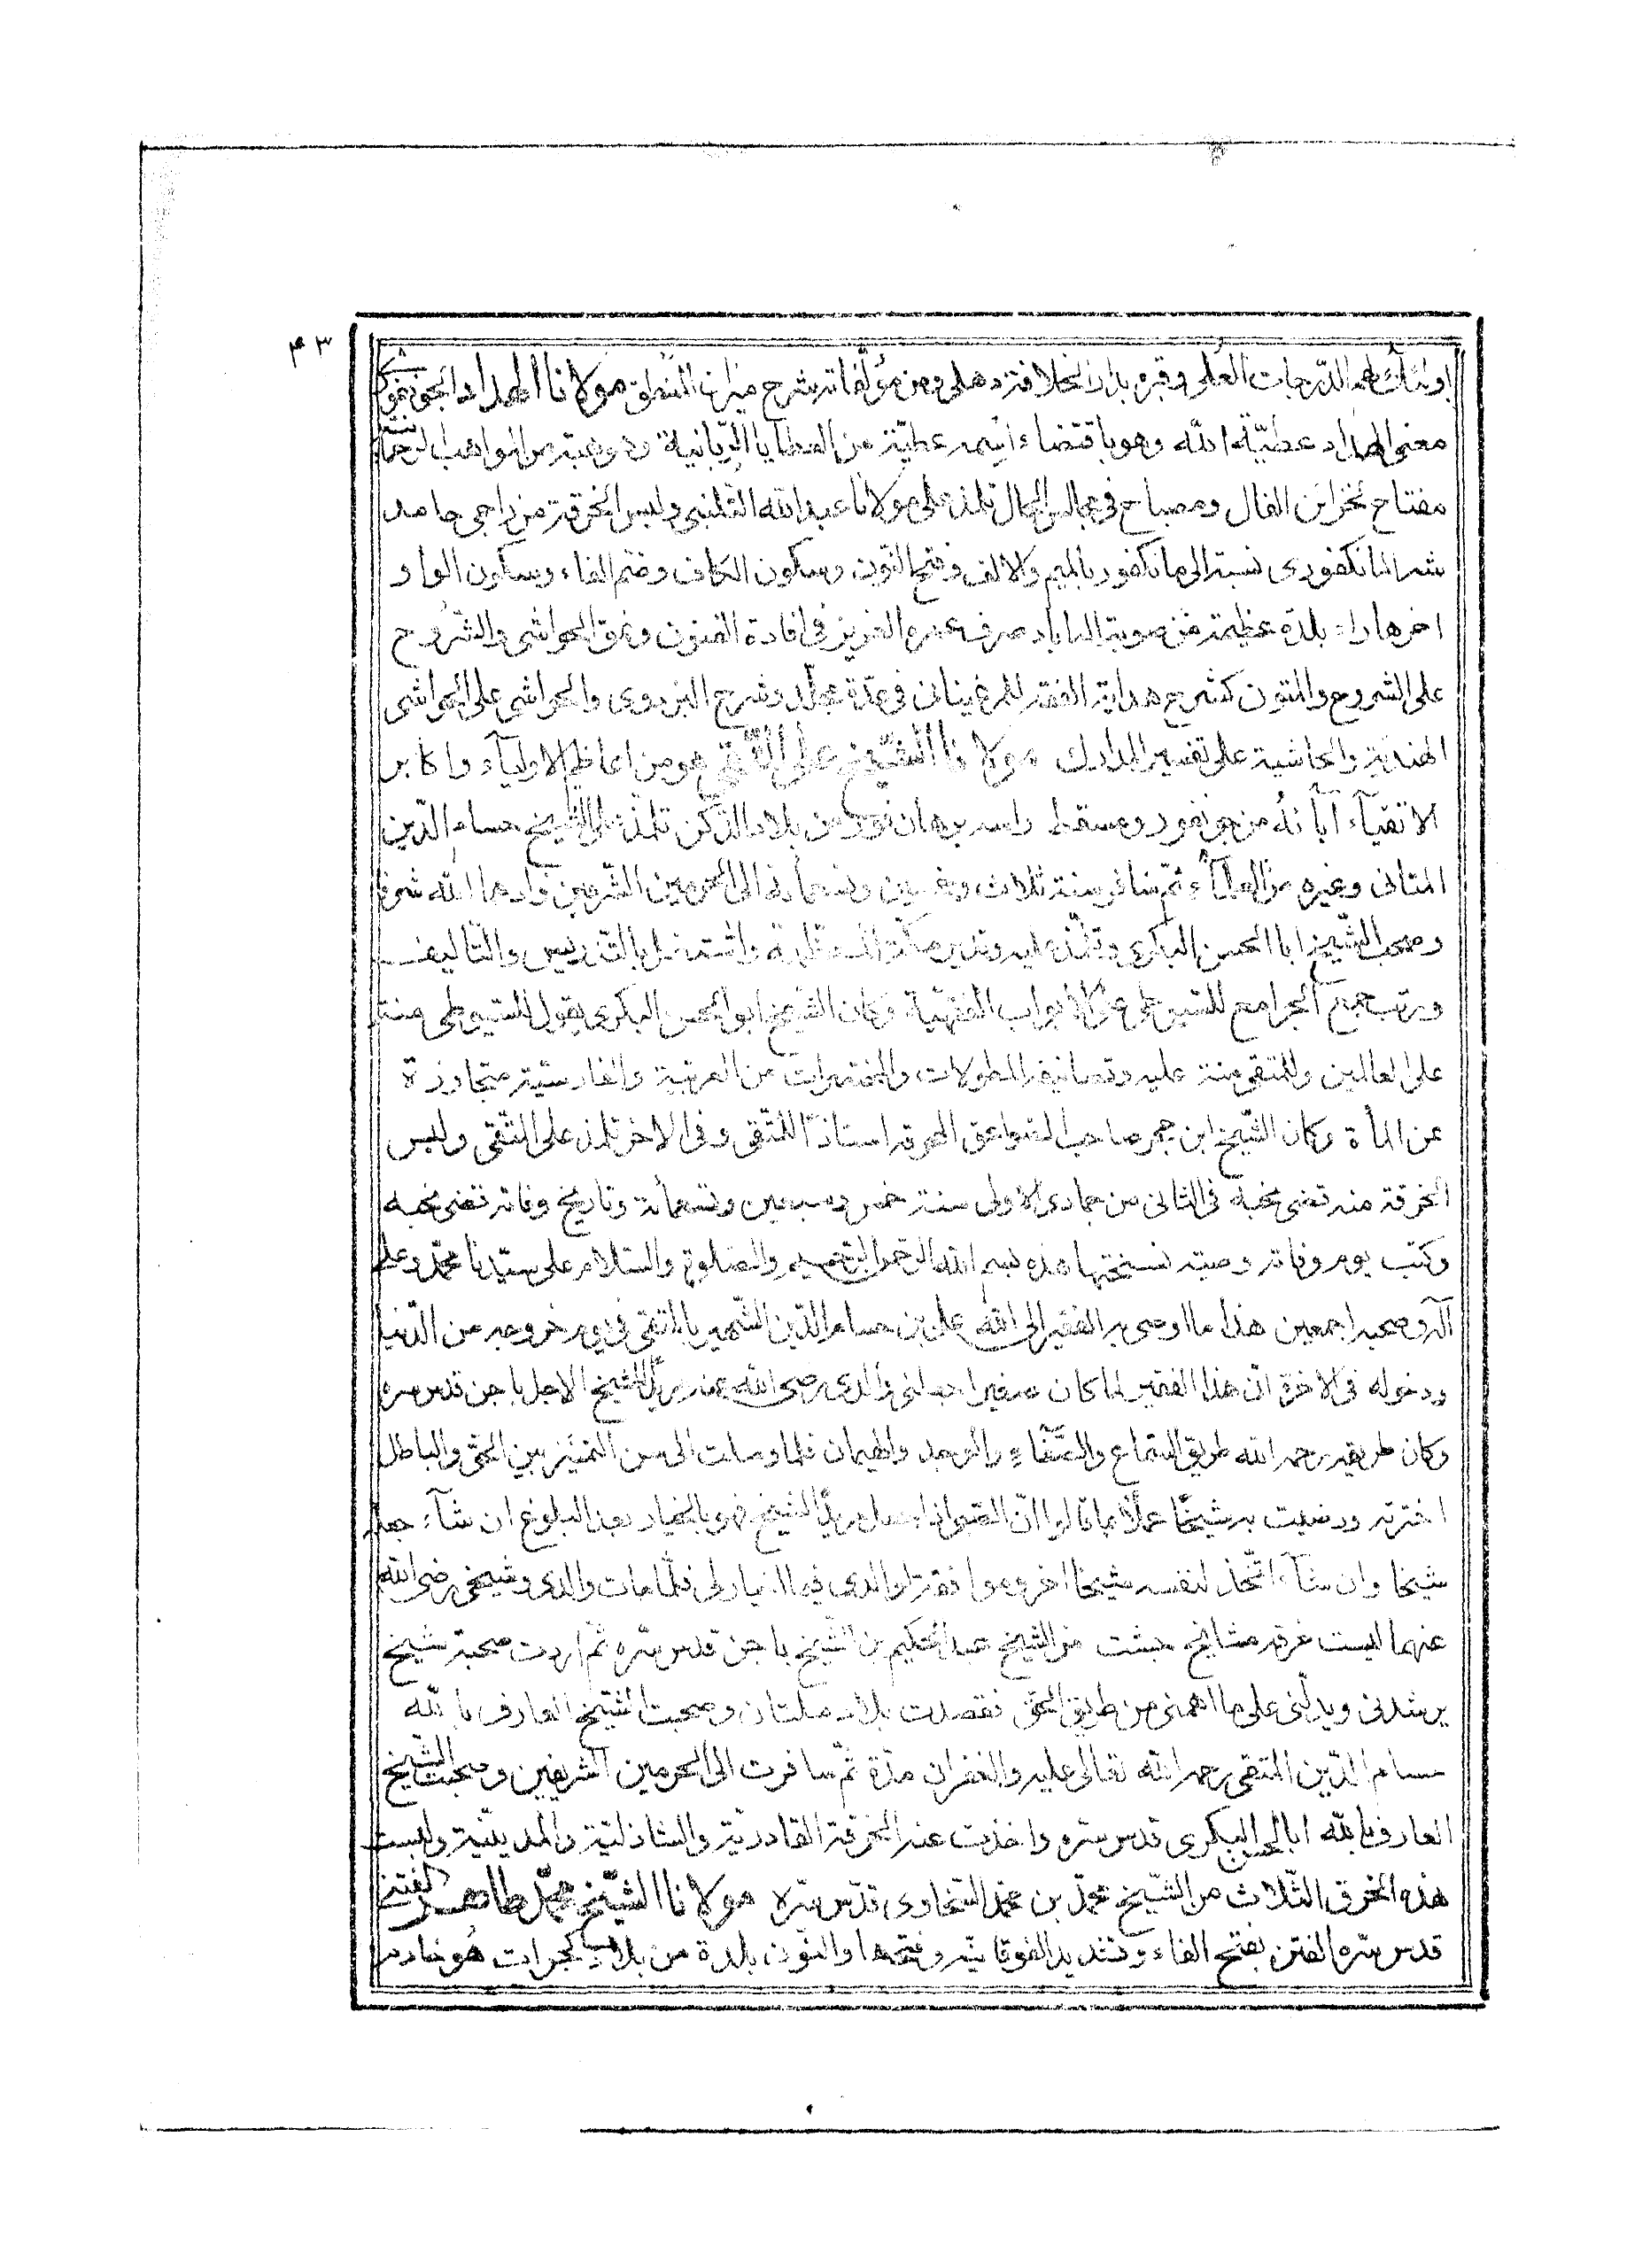 ٤٣
اولئك لهم الدّرجات العُلى وقبره بدار الخلافة دهلى ومن مؤلّفاته شرح ميزان المنطق مولانا الهداد الجونفورى
معنى الهداد عطيّة الله وهو باقتضاء اسمه عطيّة من العطايا الرّبّانية وموهبة من المواهب الرحمانية
مفتاح لخزائن القال ومصباح فى مجالس الحال تلمذ على مولانا عبد الله التلنبى ولبس الخرقة من راجى حامد
شه المانكفورى نسبة الى مانكفور بالميم والالف وفتح النّون وسكون الكاف وضم الفاء وسكون الواو
اخرها راء بلدة عظيمة من صوبة اله اباد صرف عمره العزيز فى افادة الفنون ونمق الحواشى والشّروح
على الشروح والمتون كشرح هداية الفقه للمرغينانى فى عدّة مجلّد وشرح البزدوى والحواشى على الحواشى
الهنديّة والحاشية على تفسير المدارك مولانا الشّيخ على المتّقى هو من اعاظم الاولياء واكابر
الاتقياء اباؤه من جونفور ومسقط راسه برهانفور من بلاد الدّكن تلمذ على الشّيخ حسام الدّين
المتانى وغيره من العلماء ثم سافر سنة ثلاث وخمسين وتسعمائة الى الحرمين الشريفين زادهما الله شرفا
وصحب الشّيخ ابا الحسن البكرى وتلمّذ عليه وتديّر مكّة المكرّمة واشتغل بالتّدريس والتّاليف
ورتب جمع الجوامع للسّيوطى على الابواب الفقهيّة وكان الشّيخ ابو الحسن البكرى يقول للسّيوطى منة
على العالمين وللمتقى منة عليه وتصانيفه المطولات والمختصرات من العربية والفارسيّة متجاوزة
عن المأة وكان الشّيخ ابن حجر صاحب الصّواعق المحرقه استاذاً للمتّقى وفى الاخر تلمذ على المتّقى ولبس
الخرقة منه قضى نحبه فى الثانى من جمادى الاولى سنة خمس وسبعين وتسعمأنة وتاريخ وفاته قضى نحبه
وكتب يوم وفاته وصية نسختها هذه بسم الله الرّحمن الرّحيم والصّلوة والسّلام على سيّدنا محمّد وعلى
آله وصحبه اجمعين هذا ما اوصى به الفقير الى الله على بن حسام الدّين الشّهير بالمتقى فى يوم خروجه من الدّنيا
ودخوله فى الاخرة انّ هذا الفقير لما كان صغيرا جعلنى والدى رضى الله عنه مريدًا للشّيخ الاجل باجن قدس سره
وكان طريقه رحمه الله طريق السّماع والصّفاء والوجد والهيمان فلما وصلت الى سن التّميّز بين الحق والباطل
اخترته ورضيت به شيخًا عملا بما قالوا انّ الصّبى اذا جعل مريدًا لشيخ فهو بالخيار بعد البلوغ ان شآء جعله
شيخا وان شآء اتّخذ لنفسه شيخا اخر وموافقة لوالدى فيما اختار لى فلمّا مات والدى وشيخى رضى الله
عنهما لبست خرقه مشايخ چشت من الشيخ عبد الحكيم بن الشّيخ باجن قدس سّره ثم اردت صحبة شيخ
يرشدنى ويدلّنى على ما اهمنى من طريق الحق فقصدت بلاد ملتان وصحبت الشّيخ العارف بالله
حسام الدّين المتقى رحمه الله تعالى عليه والغفران مدّة ثمّ سافرت الى الحرمين الشريفين وصحبت الشّيخ
العارف بالله ابا الحسن البكرى قدس سّره واخذت عنه الخرقة القادريّة والشاذليّة والمدينيّة ولبست
هذه الخرق الثّلاث من الشّيخ محمّد بن محمّد السّخاوى قدّس سّره مولانا الشّيخ محمّد طاهر الفتنى
قدس سّره الفتن بفتح الفاء وتشديد الفوقانيّه وفتحها والنّون بلدة من بلاد كجرات هُو خادم